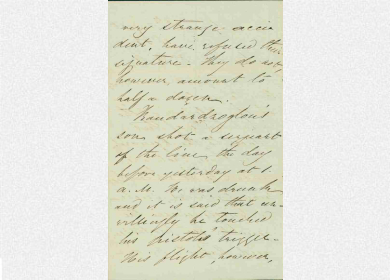 very strange acci
dent, have refused their
signature. They do not
however amount to
half a dozen.
son shot a servant
of the line the day
before yesterday at 1.
a.M. He was drunk
and it is said that un-
willingly he touched
his pistol's trigger.
His flight, however,